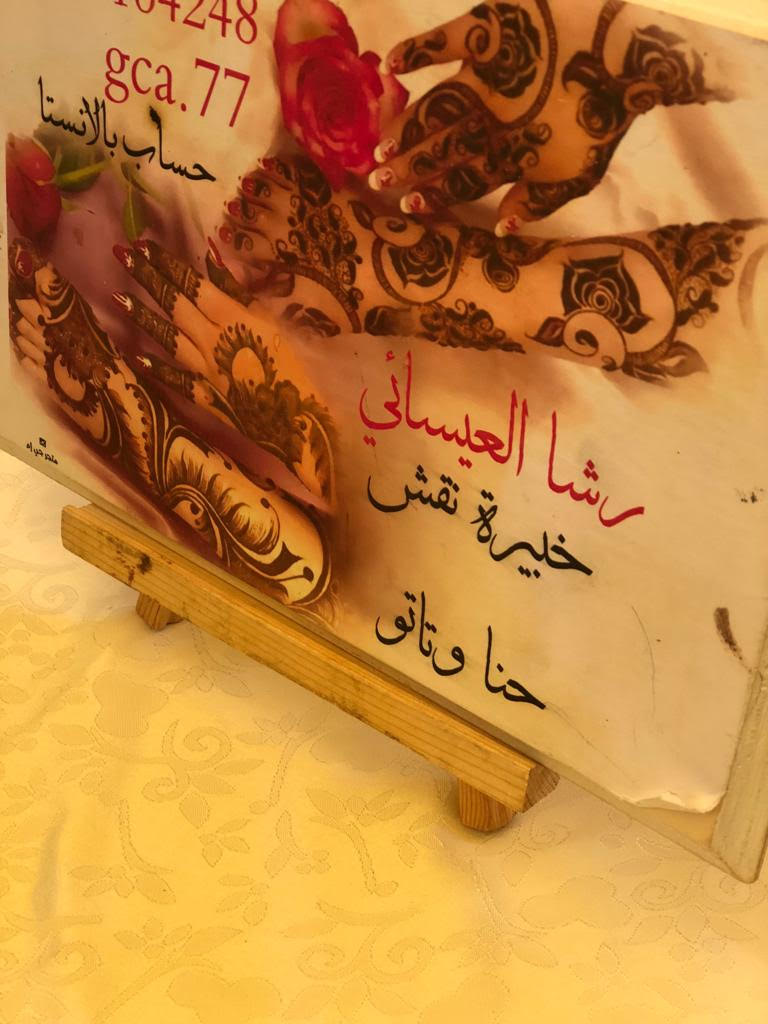 164248
gca.77
حساب بالانستا
رشا العيسائي
خبيرة نقش
حنا وتاتو
متجر جي اه